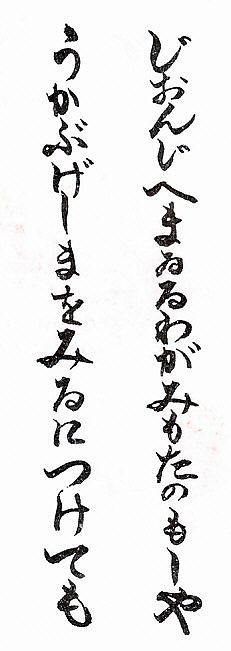 じおんじへまゐるわがみもたのもしや
うかぶげしまをみるにつけても